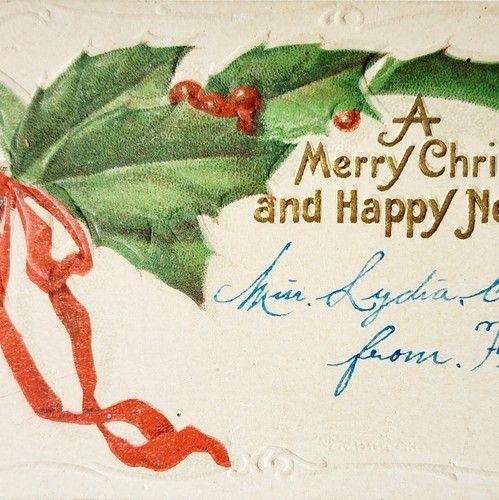 A
Merry Chri
and Happy Ne
Miss. Lydia.
from.